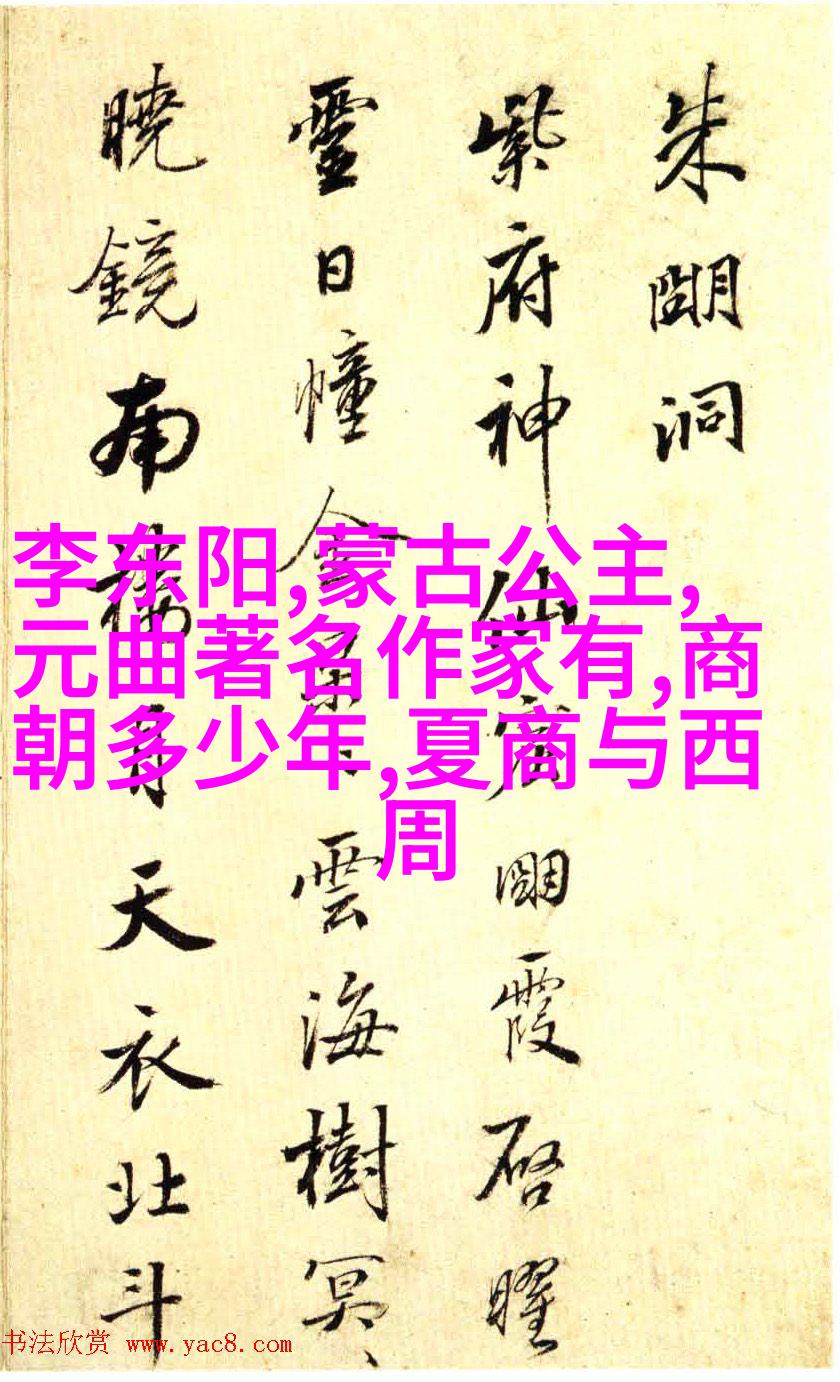 朱朙洞
紫府神仙宅朙霞啓曜
靈日幢金景〻雲海樹冥〻
曉鏡南月天衣北斗
李东阳,蒙古公主,
元曲著名作家有,商
朝多少年,夏商与西
周
书法欣赏 www.yac8.com